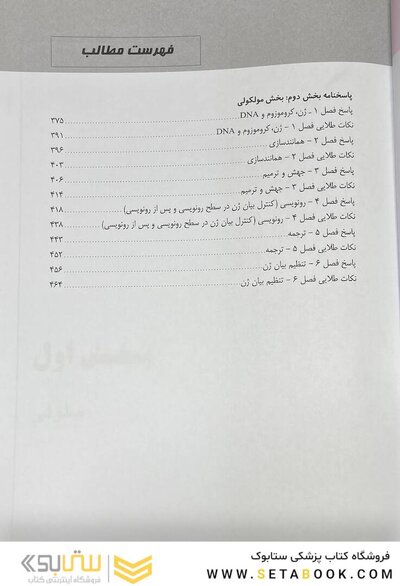 فهرست مطالب
پاسخنامه بخش دوم: بخش مولکولی
پاسخ فصل ۱ – ژن، کروموزوم و DNA ۳۷۵
نکات طلایی فصل ۱ – ژن، کروموزوم و DNA ۳۹۱
پاسخ فصل ۲ – همانندسازی ۳۹۶
نکات طلایی فصل ۲ – همانندسازی ۴۰۳
پاسخ فصل ۳ – جهش و ترمیم ۴۰۶
نکات طلایی فصل ۳ – جهش و ترمیم ۴۱۴
پاسخ فصل ۴ – رونویسی (کنترل بیان ژن در سطح رونویسی و پس از رونویسی) ۴۱۸
نکات طلایی فصل ۴ – رونویسی (کنترل بیان ژن در سطح رونویسی و پس از رونویسی) ۴۳۸
پاسخ فصل ۵ – ترجمه ۴۴۳
نکات طلایی فصل ۵ – ترجمه ۴۵۲
پاسخ فصل ۶ – تنظیم بیان ژن ۴۵۶
نکات طلایی فصل ۶ – تنظیم بیان ژن ۴۶۴
فروشگاه کتاب پزشکی ستابوک
WWW.SETABOOK.COM
ستابوک
فروشگاه اینترنتی کتاب